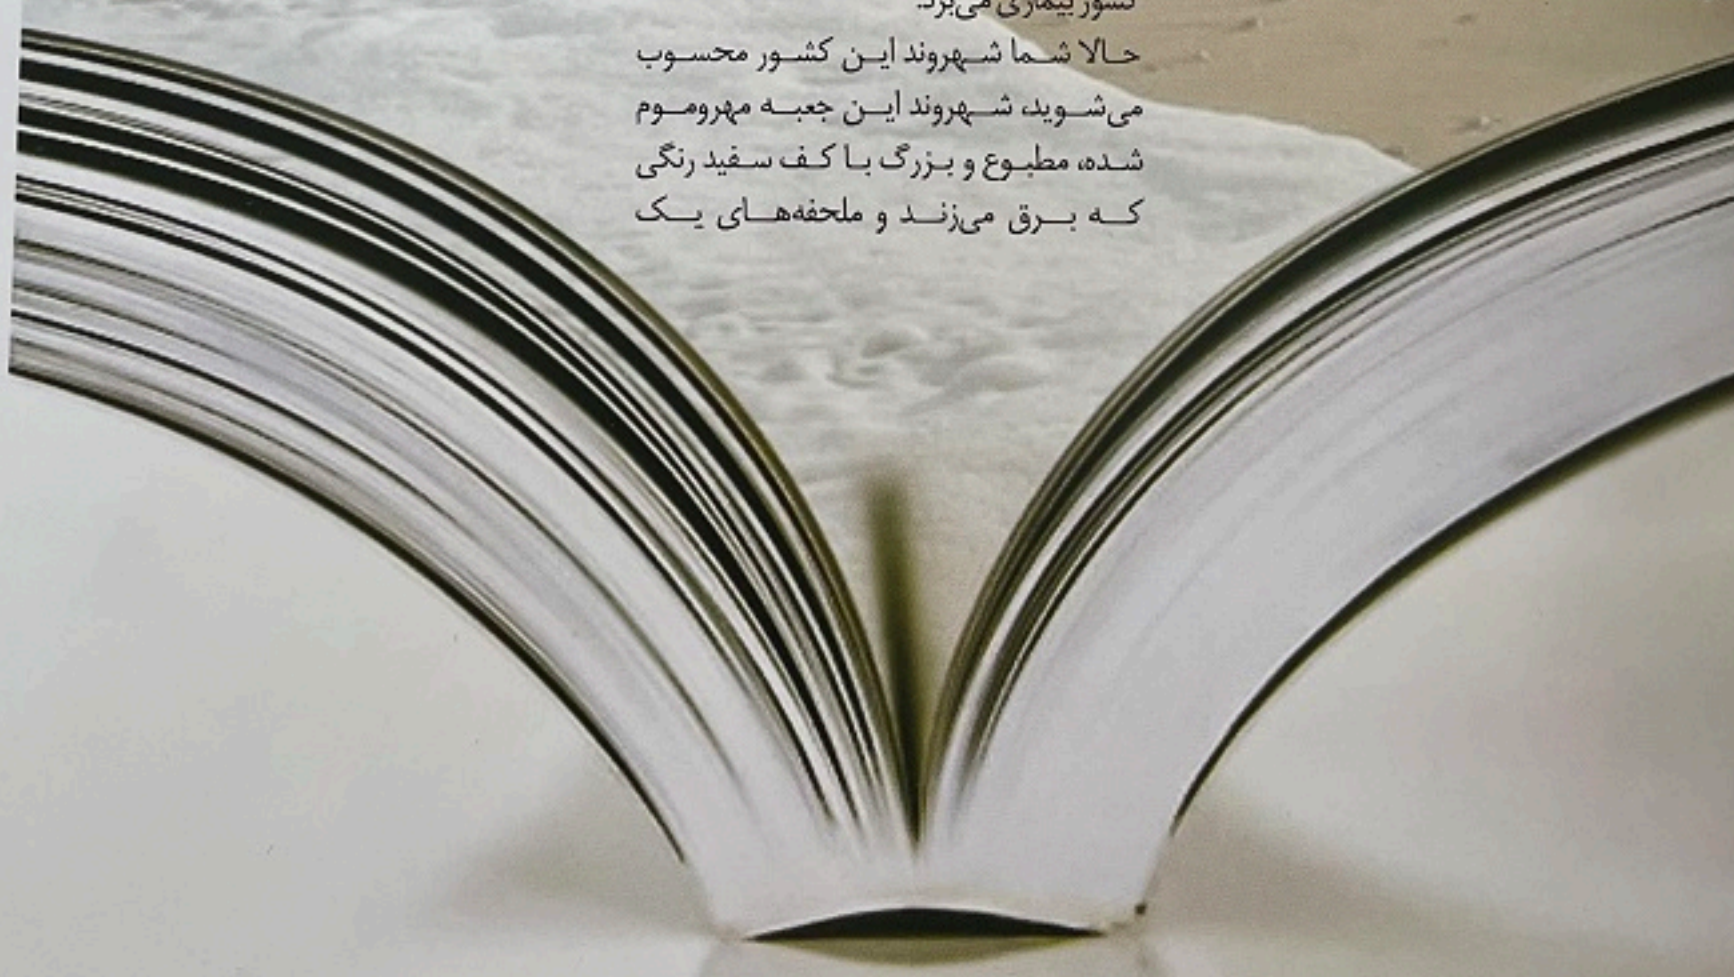 کشور بیماری می‌برد.
حالا شما شهروند این کشور محسوب
می‌شوید، شهروند این جعبه مهروموم
شده، مطبوع و بزرگ با کف سفید رنگی
که برق می‌زند و ملحفه‌های یک